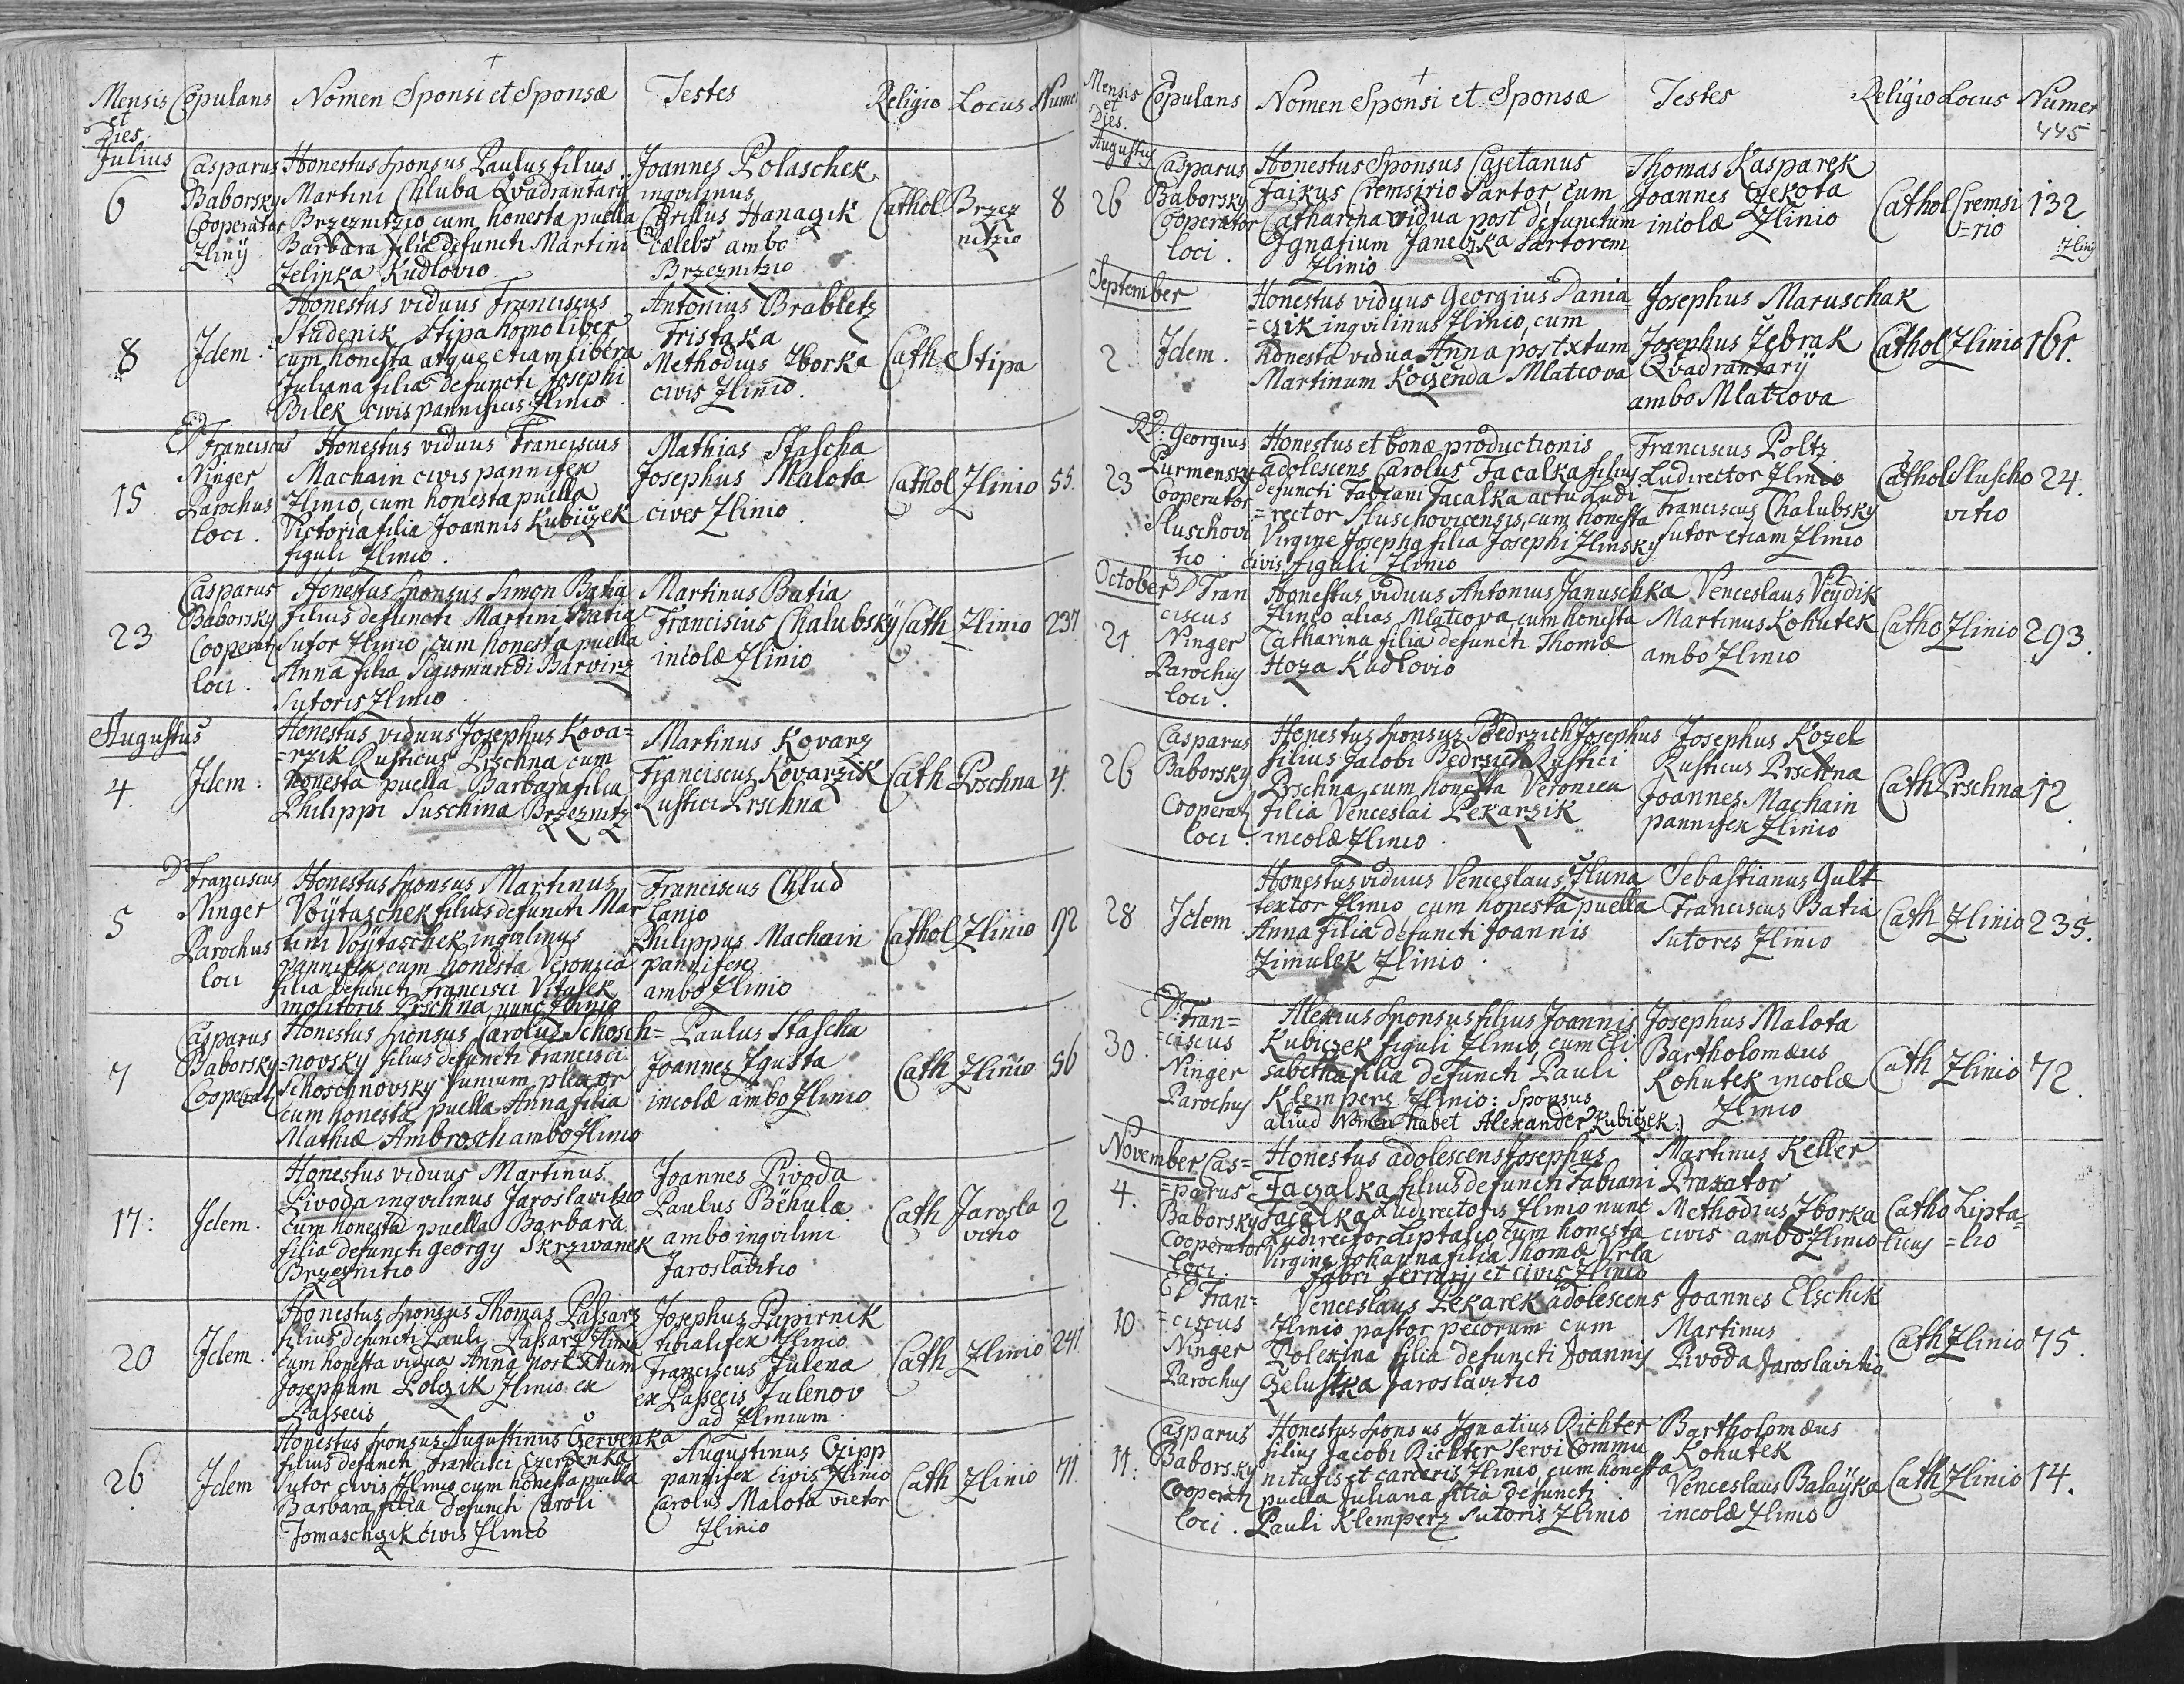 Mensis et Dies. Copulans Nomen Sponsi et Sponsæ Testes Religio Locus Numer
Julius
6
Casparus
Baborsky
Cooperator
Zlinÿ
Honestus sponsus Paulus filius
Martini Chluba Qvadrantarÿ
Brzeznitzio cum honesta puella
Barbara filia defuncti Martini
Zelinka Kudlovio
Joannes Polaschek
inqvilinus
Cÿrillus Hanaczik
cælebs ambo
Brzeznitzio
Cathol
Brzez
nitzio
8
8
Idem.
Honestus viduus Franciscus
Studenik Stipa homo liber
cum honesta atque etiam libera
Juliana filia defuncti Josephi
Bilek civis pannificis Zlinio
Antonius Brabletz
Fristaka
Methodius Zborka
civis Zlinio.
Cath
Stipa
15
D Franciscus
Ninger
Parochus
loci.
Honestus viduus Franciscus
Machain civis pannifex
Zlinio, cum honesta puella
Victoria filia Joannis Kubiczek
figuli Zlinio.
Mathias Stascha
Josephus Malota
cives Zlinio
Cathol
Zlinio
55.
23
Casparus
Baborsky
Cooperat
loci.
Honestus sponsus Simon Batia
filius defuncti Martini Batia
Sutor Zlinio cum honesta puella
Anna filia Sigismundi Barvirz
Sutoris Zlinio
Martinus Batia
Franciscus Chalubskÿ
incolæ Zlinio
Cath
Zlinio
237
Augustus
4
Idem:
Honestus viduus Josephus Kova=
=rzik Rusticus Prschna cum
honesta puella Barbara filia
Philippi Suschina Brzeznitz
Martinus Kovarz
Franciscus Kovarzik
Rustici Prschna
Cath
Prschna
4.
5
D Franciscus
Ninger
Parochus
loci
Honestus sponsus Martinus
Voÿtaschek filius defuncti Mar
tini Voÿtaschek inqvilinus
pannifex cum honesta Veronica
filia defuncti Francisci Vitasek
molitoris Prschna nunc Zlinio
Franciscus Chlud
Lanio
Philippus Machain
pannifex
ambo Zlinio
Cathol
Zlinio
92
7
Casparus
Baborsky
Cooperat
Honestus sponsus Carolus Schosch=
=novsky filius defuncti Francisci
Schoschnovsky funium plexor
cum honesta puella Anna filia
Mathiæ Ambrosch ambo Zlinio
Paulus Stascha
Joannes Zgusta
incolæ ambo Zlinio
Cath
Zlinio
56
17:
Idem.
Honestus viduus Martinus
Pivoda inqvilinus Jaroslavitzio
cum honesta puella Barbara
filia defuncti Georgy Skrziwanek
Brzeznitio
Joannes Pivoda
Paulus Bëhula
ambo inqvilini
Jaroslavitio
Cath
Jarosla
vitio
2
20
Idem.
Honestus sponsus Thomas Passarz
filius defuncti Pauli Passarz Zlinio
cum honesta vidua Anna post xtum
Josephum Polczik Zlinio ex
Passecis
Josephus Papirnik
tibialifex Zlinio
Franciscus Julena
ex Passecis Zulenov
ad Zlinium
Cath
Zlinio
241.
26
Idem
Honestus sponsus Augustinus Czervenka
filius defuncti Francisci Czervenka
Sutor civis Zlinio cum honesta puella
Barbara filia defuncti Caroli
Tomaschczik civis Zlinio
Augustinus Czipp
pannifex civis Zlinio
Carolus Malota vietor
Zlinio
Cath
Zlinio
71.
Mensis et Dies. Copulans Nomen Sponsi et Sponsæ Testes Religio Locus Numer
445
Augustus
26
Casparus
Baborsky
Cooperator
loci.
Honestus Sponsus Cajetanus
Faikus Cremsirio Sartor cum
Catharina vidua post defunctum
Ignatium Janeczka Sartorem
Zlinio
Thomas Kasparek
Joannes Czekota
incolæ Zlinio
Cathol
Cremsi
=rio
132
Zlinÿ
September
2
Idem.
Honestus viduus Georgius Dania=
=czik inqvilinus Zlinio, cum
honesta vidua Anna post xtum
Martinum Koczenda Mlatcova
Josephus Maruschak
Josephus Zebrak
Qvadrantarÿ
ambo Mlatzova
Cathol
Zlinio
161.
23
RD: Georgius
Purmensky
Cooperator
Sluschovi
tio
Honestus et bonæ productionis
adolescens Carolus Facalka filius
defuncti Fabiani Facalka actu Ludi
=rector Sluschovicensis, cum honesta
Virgine Josepha filia Josephi Zlinsky
civis figuli Zlinio
Franciscus Poltz
Ludirector Zlinio
Franciscus Chalubsky
sutor etiam Zlinio
Cathol
Sluscho
vitio
24.
October
21.
D Fran
ciscus
Ninger
Parochus
loci.
Honestus viduus Antonius Januschka
Zlinio alias Mlatcova cum honesta
Catharina filia defuncti Thomæ
Hoza Kudlovio
Venceslaus Veÿdik
Martinus Kohutek
ambo Zlinio
Catho
Zlinio
293.
26
Casparus
Baborsky
Cooperat
loci.
Honestus sponsus Bedrzich Josephus
filius Jacobi Bedrzich Rustici
Prschna, cum honesta Veronica
filia Venceslai Pekarzik
incolæ Zlinio.
Josephus Kozel
Rusticus Prschna
Joannes Machain
pannifex Zlinio
Cath
Prschna
12
28
Idem
Honestus viduus Venceslaus Zluna
textor Zlinio cum honesta puella
Anna filia defuncti Joannis
Zimulek Zlinio.
Sebastianus Gult
Franciscus Batia
Sutores Zlinio
Cath
Zlinio
235.
30.
D. Fran=
=ciscus
Ninger
Parochus
Alexius sponsus filius Joannis
Kubiczek figuli Zlinio, cum Eli
sabetha filia defuncti Pauli
Klempers Zlinio: Sponsus
aliud Nomen habet Alexander Kubiczek:)
Josephus Malota
Bartholomæus
Kohutek incolæ
Zlinio
Cath
Zlinio
72.
November
4.
Cas=
=parus
Baborsky
Cooperator
loci.
Honestus adolescens Josephus
Faczalka filius defuncti Fabiani
Facalka Ludirectoris Zlinio nunc
Ludirector Liptalio cum honesta
Virgine Johanna filia Thomæ Vrla
fabri ferrarÿ et civis Zlinio
Martinus Keller
Braxator
Methodius Zborka
civis ambo Zlinio
Catho
licus
Lipta=
=lio
10.
D Fran=
=ciscus
Ninger
Parochus
Venceslaus Pekarek adolescens
Zlinio pastor pecorum cum
Polexina filia defuncti Joannis
Czelustka Jaroslavitio
Joannes Elschik
Martinus
Pivoda Jaroslavitio
Cath
Zlinio
75.
11:
Casparus
Baborsky
Cooperat
loci.
Honestus sponsus Ignatius Richter
filius Jacobi Richter Servi Commu
nitatis et carceris Zlinio, cum honesta
puella Juliana filia defuncti
Pauli Klemperz Sutoris Zlinio
Bartholomæus
Kohutek
Venceslaus Balaÿka
incolæ Zlinio
Cath
Zlinio
14.